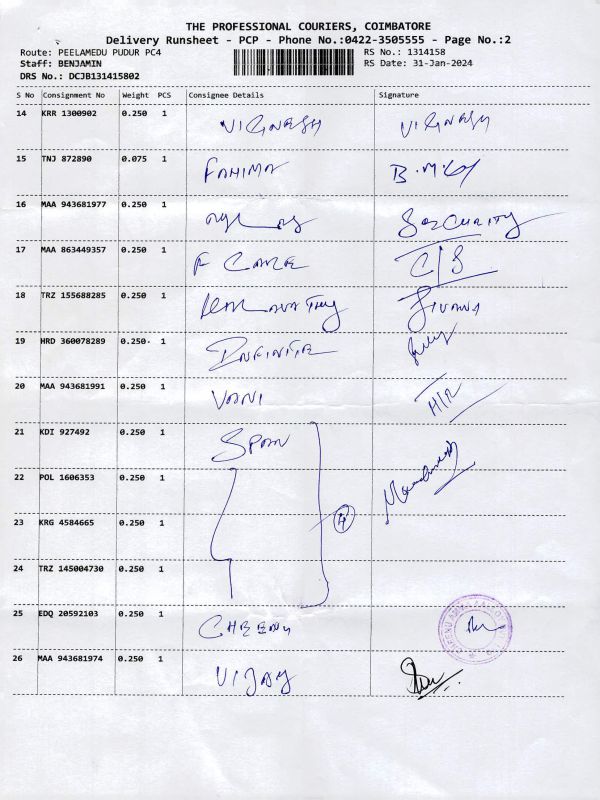 THE PROFESSIONAL COURIERS, COIMBATORE
Delivery Runsheet - PCP - Phone No.:0422-3505555 - Page No.:2
Route: PEELAMEDU PUDUR PC4
RS No.: 1314158
Staff: BENJAMIN
RS Date: 31-Jan-2024
DRS No.: DCJB131415802
S No Consignment No Weight PCS Consignee Details Signature
14 KRR 1300902 0.250 1 VIGNESH VIGNESH
15 TNJ 872890 0.075 1 FAHIMA
16 MAA 943681977 0.250 1 SECURITY
17 MAA 863449357 0.250 1 F CARE C/S
18 TRZ 155688285 0.250 1 JIVANA
19 HRD 360078289 0.250 1 INFINITE
20 MAA 943681991 0.250 1 VANI H/R
21 KDI 927492 0.250 1 SPAN
22 POL 1606353 0.250 1
23 KRG 4584665 0.250 1 4
24 TRZ 145004730 0.250 1
25 EDQ 20592103 0.250 1 CHEENU
26 MAA 943681974 0.250 1 VIJAY